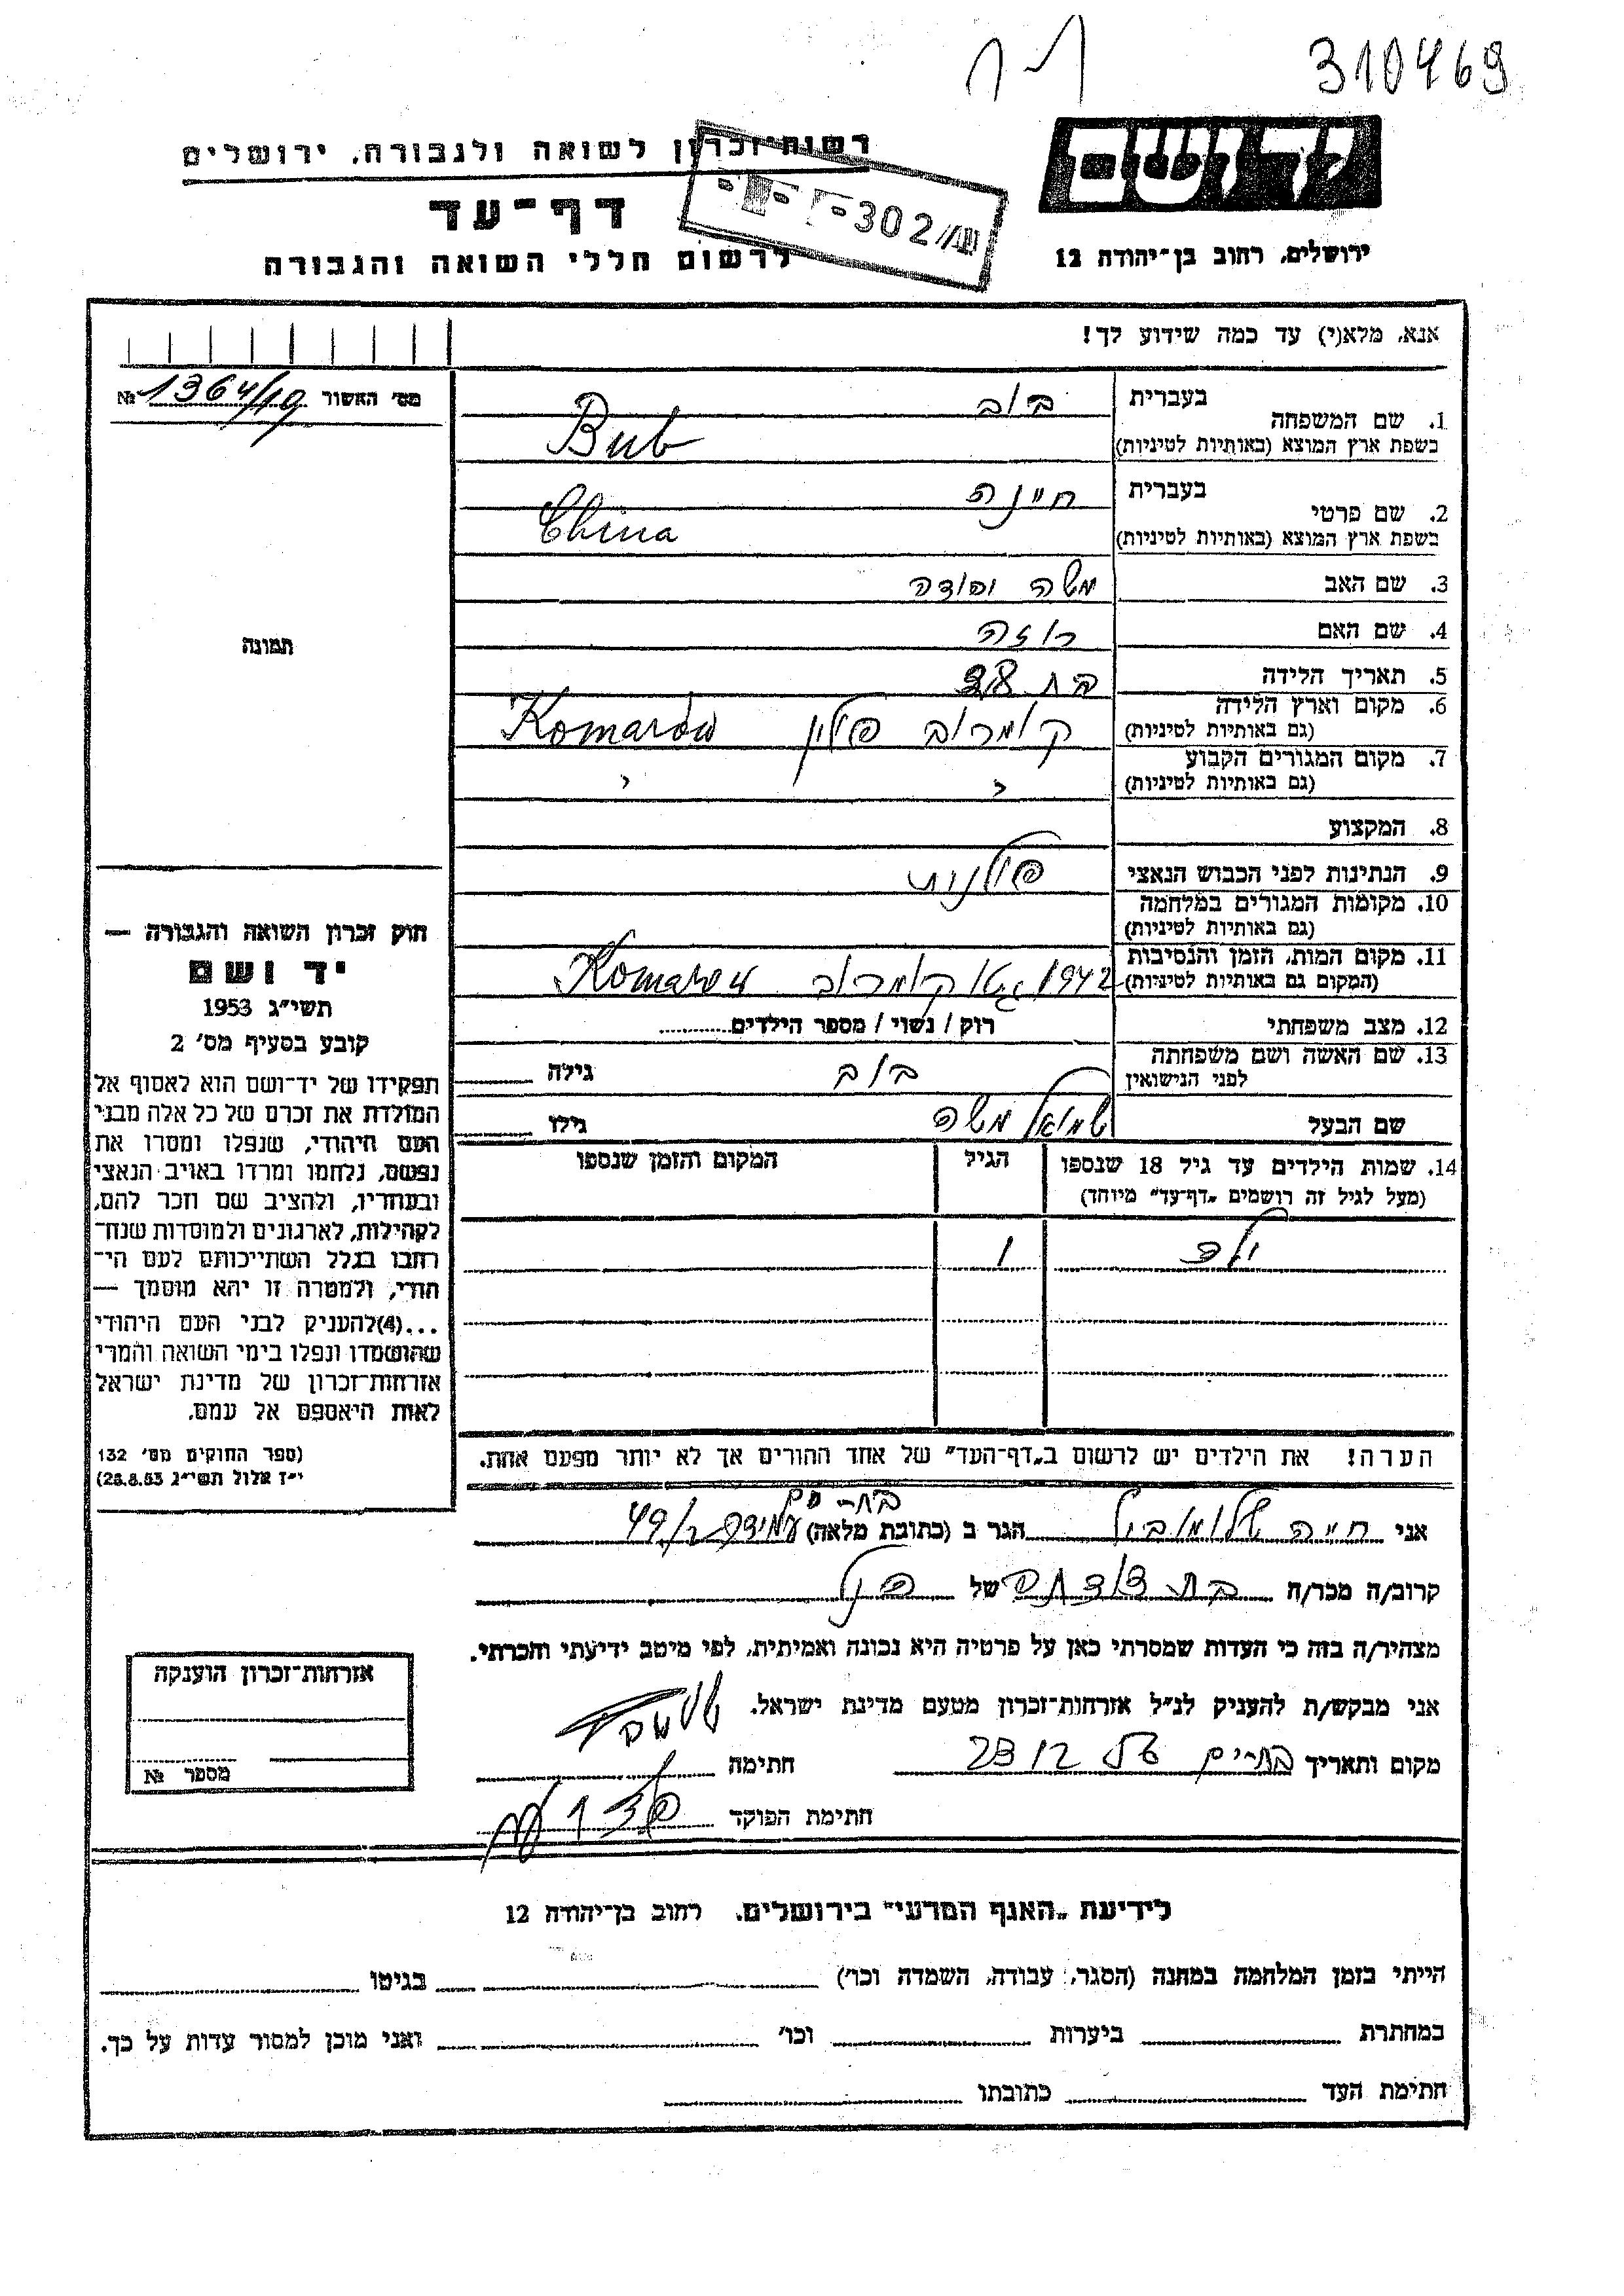 310469
רשות־זכרון לשואה ולגבורה, ירושלים
יד ושם
דף־עד
302
לרשום חללי השואה והגבורה
ירושלים, רחוב בן־יהודה 12
אנא, מלא(י) עד כמה שידוע לך!
מס׳ האשור № 1364/19
1. שם המשפחה בעברית בוב
בשפת ארץ המוצא (באותיות לטיניות) Bub
2. שם פרטי בעברית חיינה
בשפת ארץ המוצא (באותיות לטיניות) China
3. שם האב משה
4. שם האם רוזה
5. תאריך הלידה בת
6. מקום וארץ הלידה (גם באותיות לטיניות) קומרוב פולין Komarów
7. מקום המגורים הקבוע (גם באותיות לטיניות) " "
8. המקצוע
9. הנתינות לפני הכבוש הנאצי פולנית
10. מקומות המגורים במלחמה (גם באותיות לטיניות)
11. מקום המות, הזמן והנסיבות (המקום גם באותיות לטיניות) 1942 קומרוב Komarow
12. מצב משפחתי רוק / נשוי / מספר הילדים
13. שם האשה ושם משפחתה לפני הנישואין בוב גילה
שם הבעל שמואל משה גילו
14. שמות הילדים עד גיל 18 שנספו
(מעל לגיל זה רושמים „דף־עד” מיוחד)
הגיל
המקום והזמן שנספו
ילד 1
הערה! את הילדים יש לרשום ב„דף־העד” של אחד ההורים אך לא יותר מפעם אחת.
תמונה
חוק זכרון השואה והגבורה —
יד ושם
תשי״ג 1953
קובע בסעיף מס׳ 2
תפקידו של יד־ושם הוא לאסוף אל
המולדת את זכרם של כל אלה מבני
העם היהודי, שנפלו ומסרו את
נפשם, נלחמו ומרדו באויב הנאצי
ובעוזריו, ולהציב שם וזכר להם,
לקהילות, לארגונים ולמוסדות שנח־
רבו בגלל השתייכותם לעם הי־
הודי, ולמטרה זו יהא מוסמך —
...(4)להעניק לבני העם היהודי
שהושמדו ונפלו בימי השואה והמרי
אזרחות־זכרון של מדינת ישראל
לאות היאספם אל עמם.
(ספר החוקים מס׳ 132
י״ז אלול תשי״ג 28.8.53)
אני חייה הגר ב (כתובת מלאה) בת־ים עמידר 49/2
קרוב/ה מכר/ה בת דודתה של הנ״ל
מצהיר/ה בזה כי העדות שמסרתי כאן על פרטיה היא נכונה ואמיתית, לפי מיטב ידיעתי והכרתי.
אני מבקש/ת להעניק לנ״ל אזרחות־זכרון מטעם מדינת ישראל.
מקום ותאריך בת־ים חתימה
חתימת הפוקד
אזרחות־זכרון הוענקה
מספר №
לידיעת „האגף המדעי” בירושלים, רחוב בן־יהודה 12
הייתי בזמן המלחמה במחנה (הסגר, עבודה, השמדה וכו׳) בגיטו
במחתרת ביערות וכו׳ ואני מוכן למסור עדות על כך.
חתימת העד כתובתו